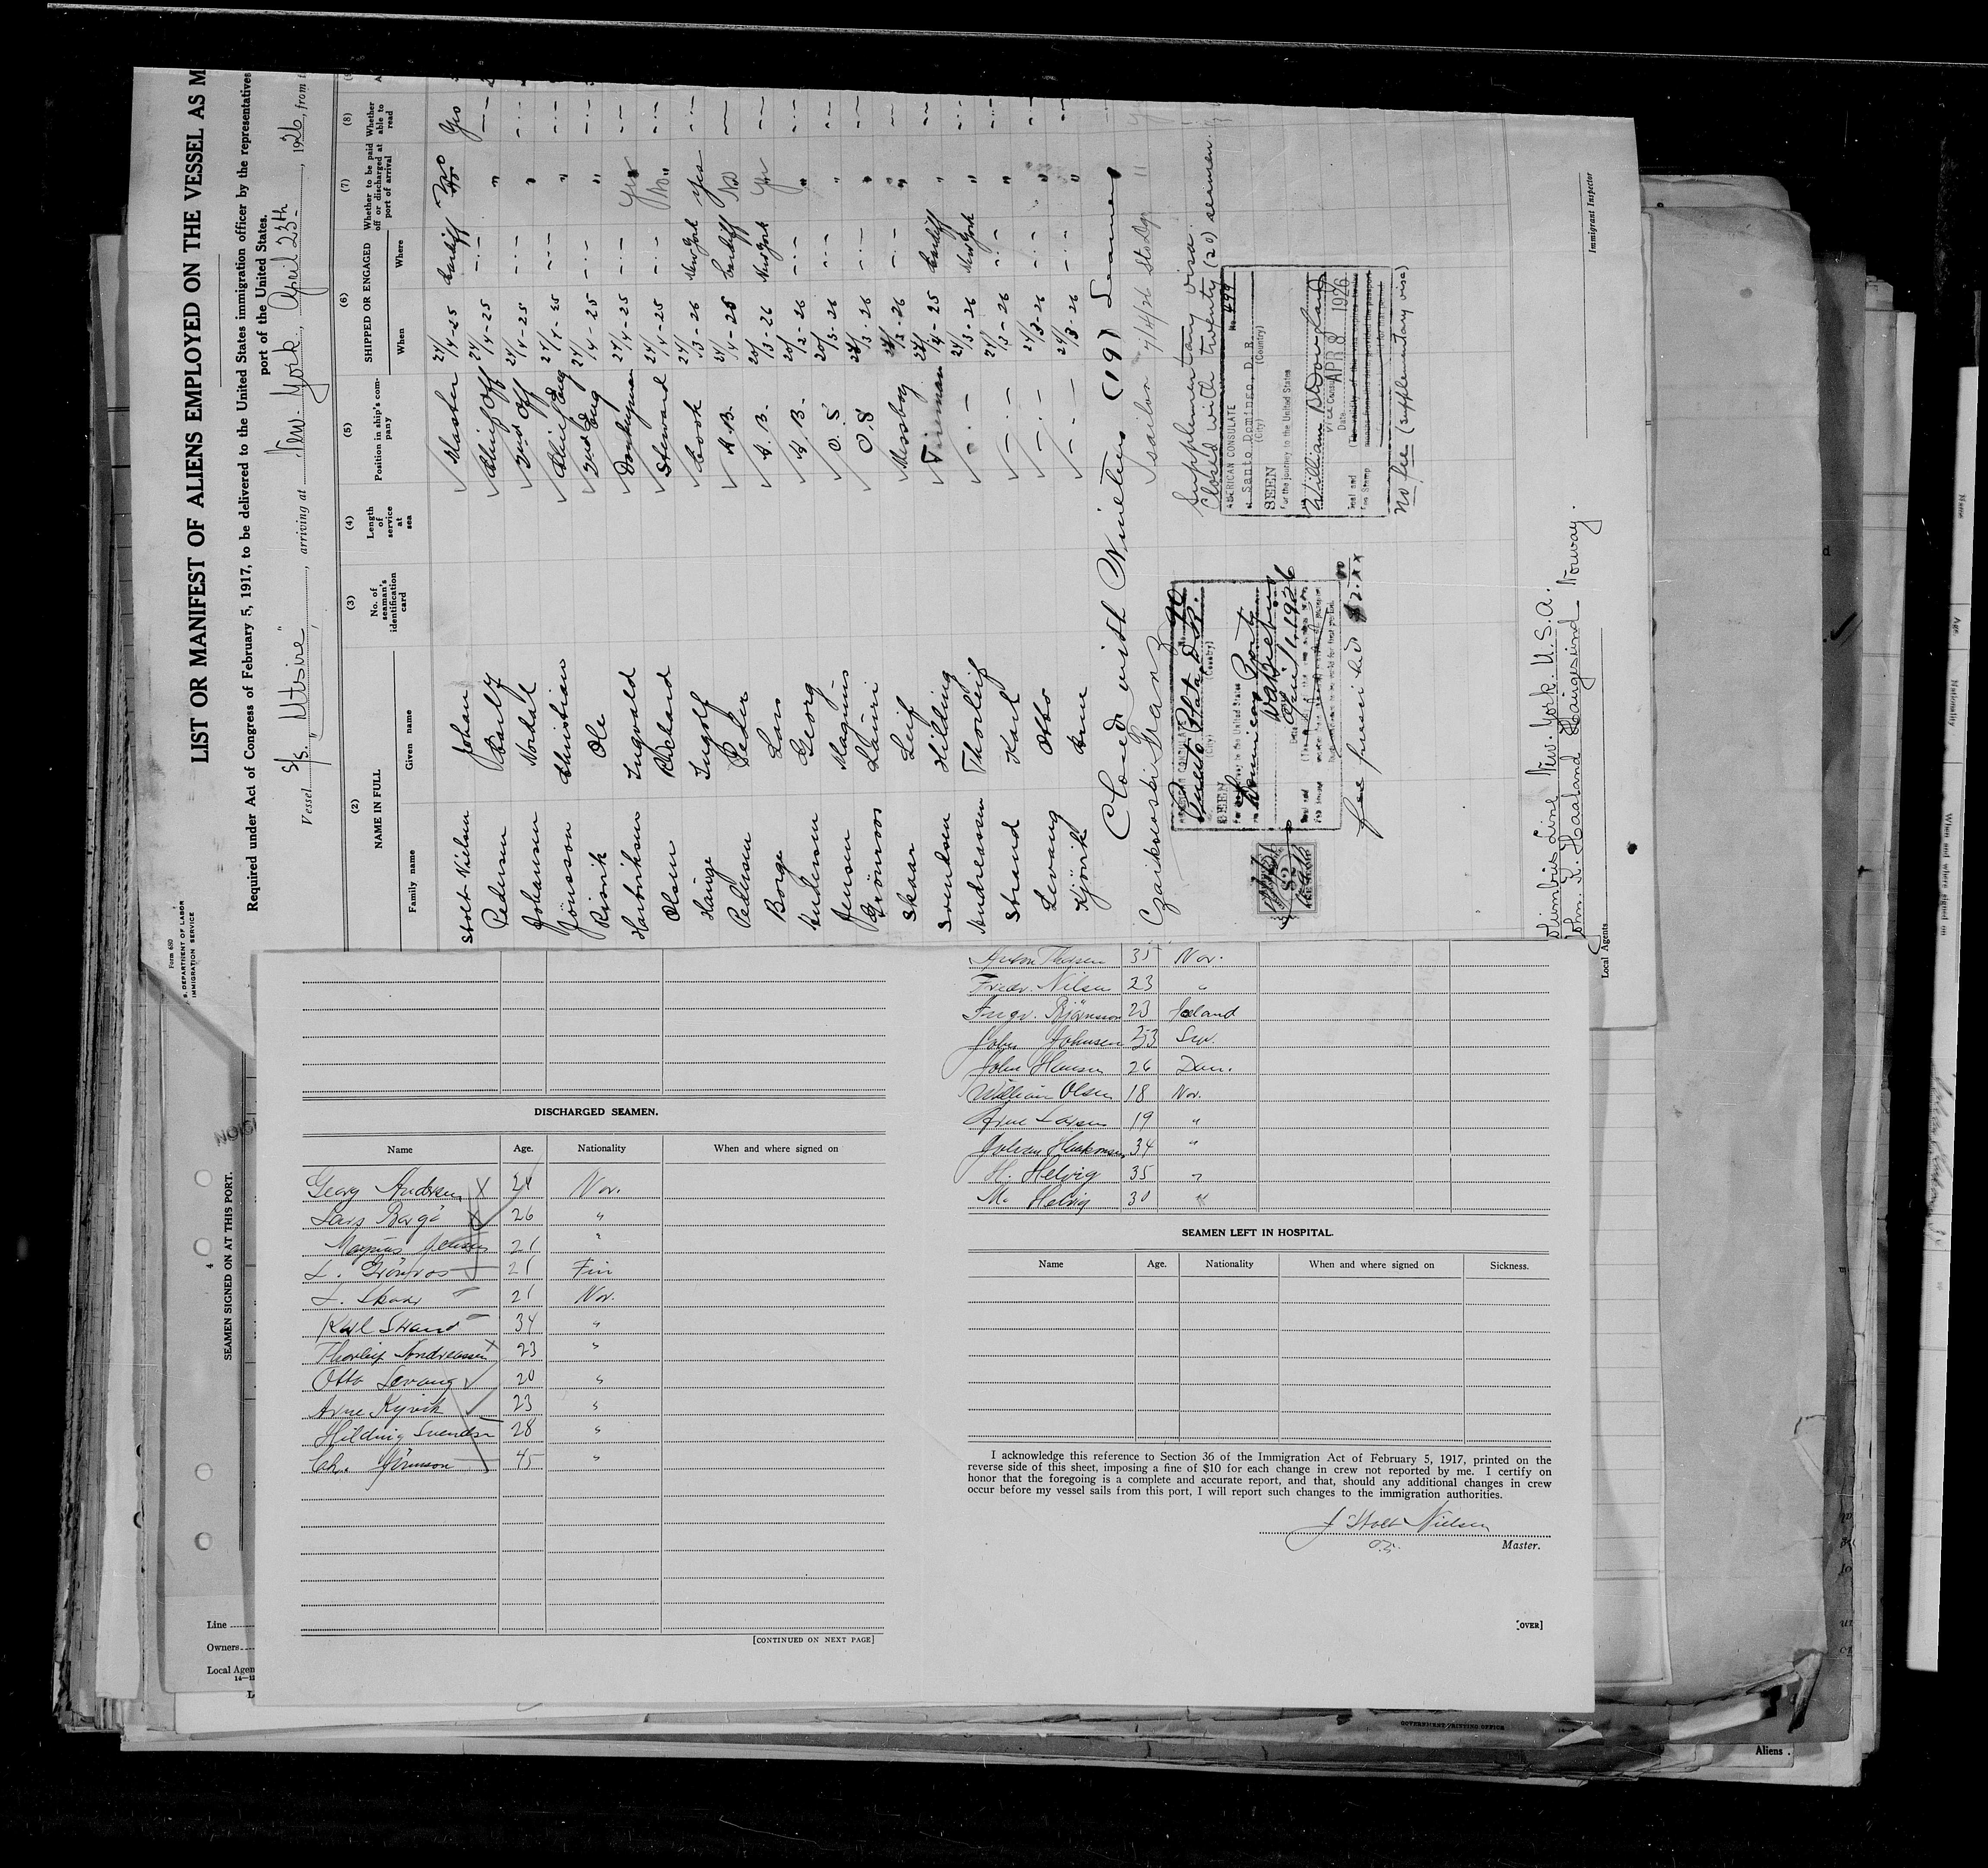 Form 680
S. DEPARTMENT OF LABOR
IMMIGRATION SERVICE
LIST OR MANIFEST OF ALIENS EMPLOYED ON THE VESSEL AS M
Required under Act of Congress of February 5, 1917, to be delivered to the United States immigration officer by the representatives
port of the United States.
Vessel S/S. "Utsire", arriving at New-York, April 23th, 1926, from
(2) (3) (4) (5) (6) (7) (8)
NAME IN FULL No. of seaman's identification card Length of service at sea Position in ship's company SHIPPED OR ENGAGED Whether to be paid off or discharged at port of arrival Whether able to read
Family name Given name When Where
Stolt Nielsen Johan Master 24/4-25 Cardiff No Yes
Pedersen 24/4-25 -"- " -"-
Johansen Nordal 2nd Off 24/4-25 -"- " -"-
Jönsson Christian Chief Eng 24/4-25 -"- " -"-
Ole 2nd Eng 24/4-25 -"- " -"-
Ingvald Donkeyman 24/4-25 -"- Yes -"-
Olsen Rikard Steward 24/4-25 -"- No -"-
Hauge Ingolf Cook 24/3-26 New York Yes -"-
Pedersen Peder A.B. 24/4-25 Cardiff No -"-
Borge Lars A.B. 20/3-26 New York Yes -"-
Andersen Georg A.B. 20/3-26 -"- " -"-
Jensen Magnus O.S 20/3-26 -"- " -"-
Grönroos Lauri O.S 24/3-26 -"- " -"-
Skaar Leif Messboy 24/3-26 -"- " -"-
Svendsen Hilding Fireman 24/4-25 Cardiff " -"-
Andreassen Thorleif -"- 24/3-26 New York " -"-
Strand Karl -"- 24/3-26 -"- " -"-
Levang Otto -"- 24/3-26 -"- " -"-
Kjörik Arne -"- 24/3-26 -"- " -"-
Closed with Nineteen (19) Seamen
Czaikowski Franz sailor 7/4/26 Sto Dgo "
AMERICAN CONSULATE
Puerto Plata, D.R.
(City) (Country)
SEEN
For the journey to the United States
April 11, 1926
fee furnished $2.xx
Supplementary visa.
Closed with twenty (20) seamen.
AMERICAN CONSULATE No. 499
at Santo Domingo, D. R.
(City) (Country)
SEEN
For the journey to the United States
William
Vice Consul
Date APR 8 1926
Seal and
Fee Stamp
No fee (supplementary visa)
Immigrant Inspector
Line New-York. U.S.A.
John K. Haaland Haugesund Norway.
Local Agents
SEAMEN SIGNED ON AT THIS PORT.
4
Line
Owners
Local Agen
DISCHARGED SEAMEN.
Name Age. Nationality When and where signed on
Georg Andersen X 24 Nov.
Lars Borge X 26 "
Magnus Jensen 21 "
L. Grönros 21 Fin
L. Skaar 21 Nov.
Karl Strand 34 "
Thorleif Andreassen X 23 "
Otto Levang 20 "
Arne Kjvik 23 "
Hilding Svendsen 28 "
Ch. Jönnson 45 "
[CONTINUED ON NEXT PAGE]
Anton Thorsen 35 Nov.
Fredr. Nilsen 23 "
Ingv. Björnsson 23 Iceland
John Johnsen 33 Sw.
John Hansen 26 Dan.
William Olsen 18 Nov.
Arne Larsen 19 "
Johan Haakonsen 34 "
H. Helvig 35 "
M. Helvig 30 "
SEAMEN LEFT IN HOSPITAL.
Name Age. Nationality When and where signed on Sickness.
I acknowledge this reference to Section 36 of the Immigration Act of February 5, 1917, printed on the
reverse side of this sheet, imposing a fine of $10 for each change in crew not reported by me. I certify on
honor that the foregoing is a complete and accurate report, and that, should any additional changes in crew
occur before my vessel sails from this port, I will report such changes to the immigration authorities.
J Stolt Nielsen
Master.
[OVER]
GOVERNMENT PRINTING OFFICE
Aliens.
Name
Age
Nationality
When and where signed on